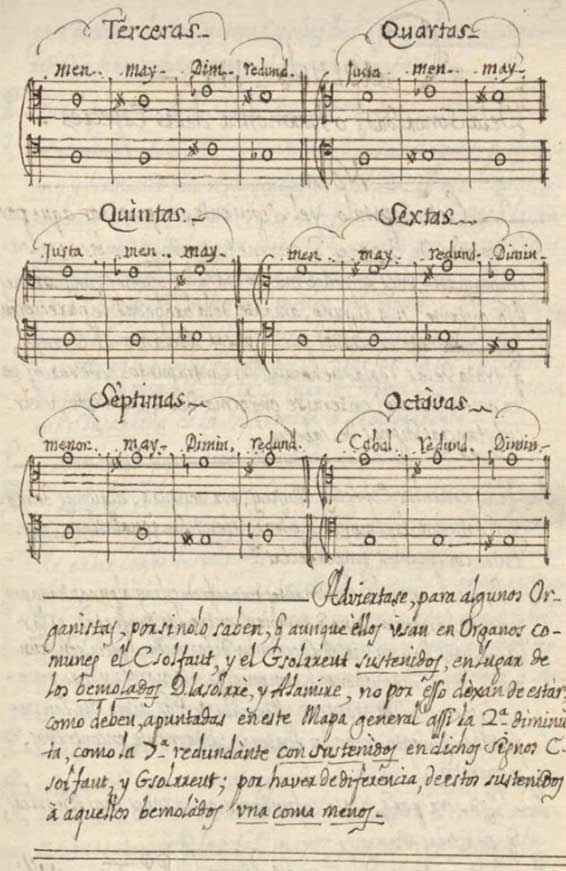 Terceras. Quartas.
men. may. Dim. redund. Justa men. may.
Quintas. Sextas.
Justa men. may. men. may. redund. Dimin.
Septimas. Octavas.
menor. may. Dimin. redund. Cabal. redund. Dimin.
Adviertase, para algunos Or-
ganistas, por si no lo saben, q̃ aunque ellos usan en Organos co-
munes el Csolfaut, y el Gsolrreut sustenidos, en lugar de
los bemolados Dlasolrrè, y Alamirre, no por èsso dèxan de estàr,
como deben, apuntadas en este Mapa general assi la 2.ª diminu
ta, como la 7.ª redundante con sustenidos en dichos signos C-
solfaut, y Gsolrreut; por haver de diferencia, de estos sustenidos
à aquellos bemolados vna coma menos.